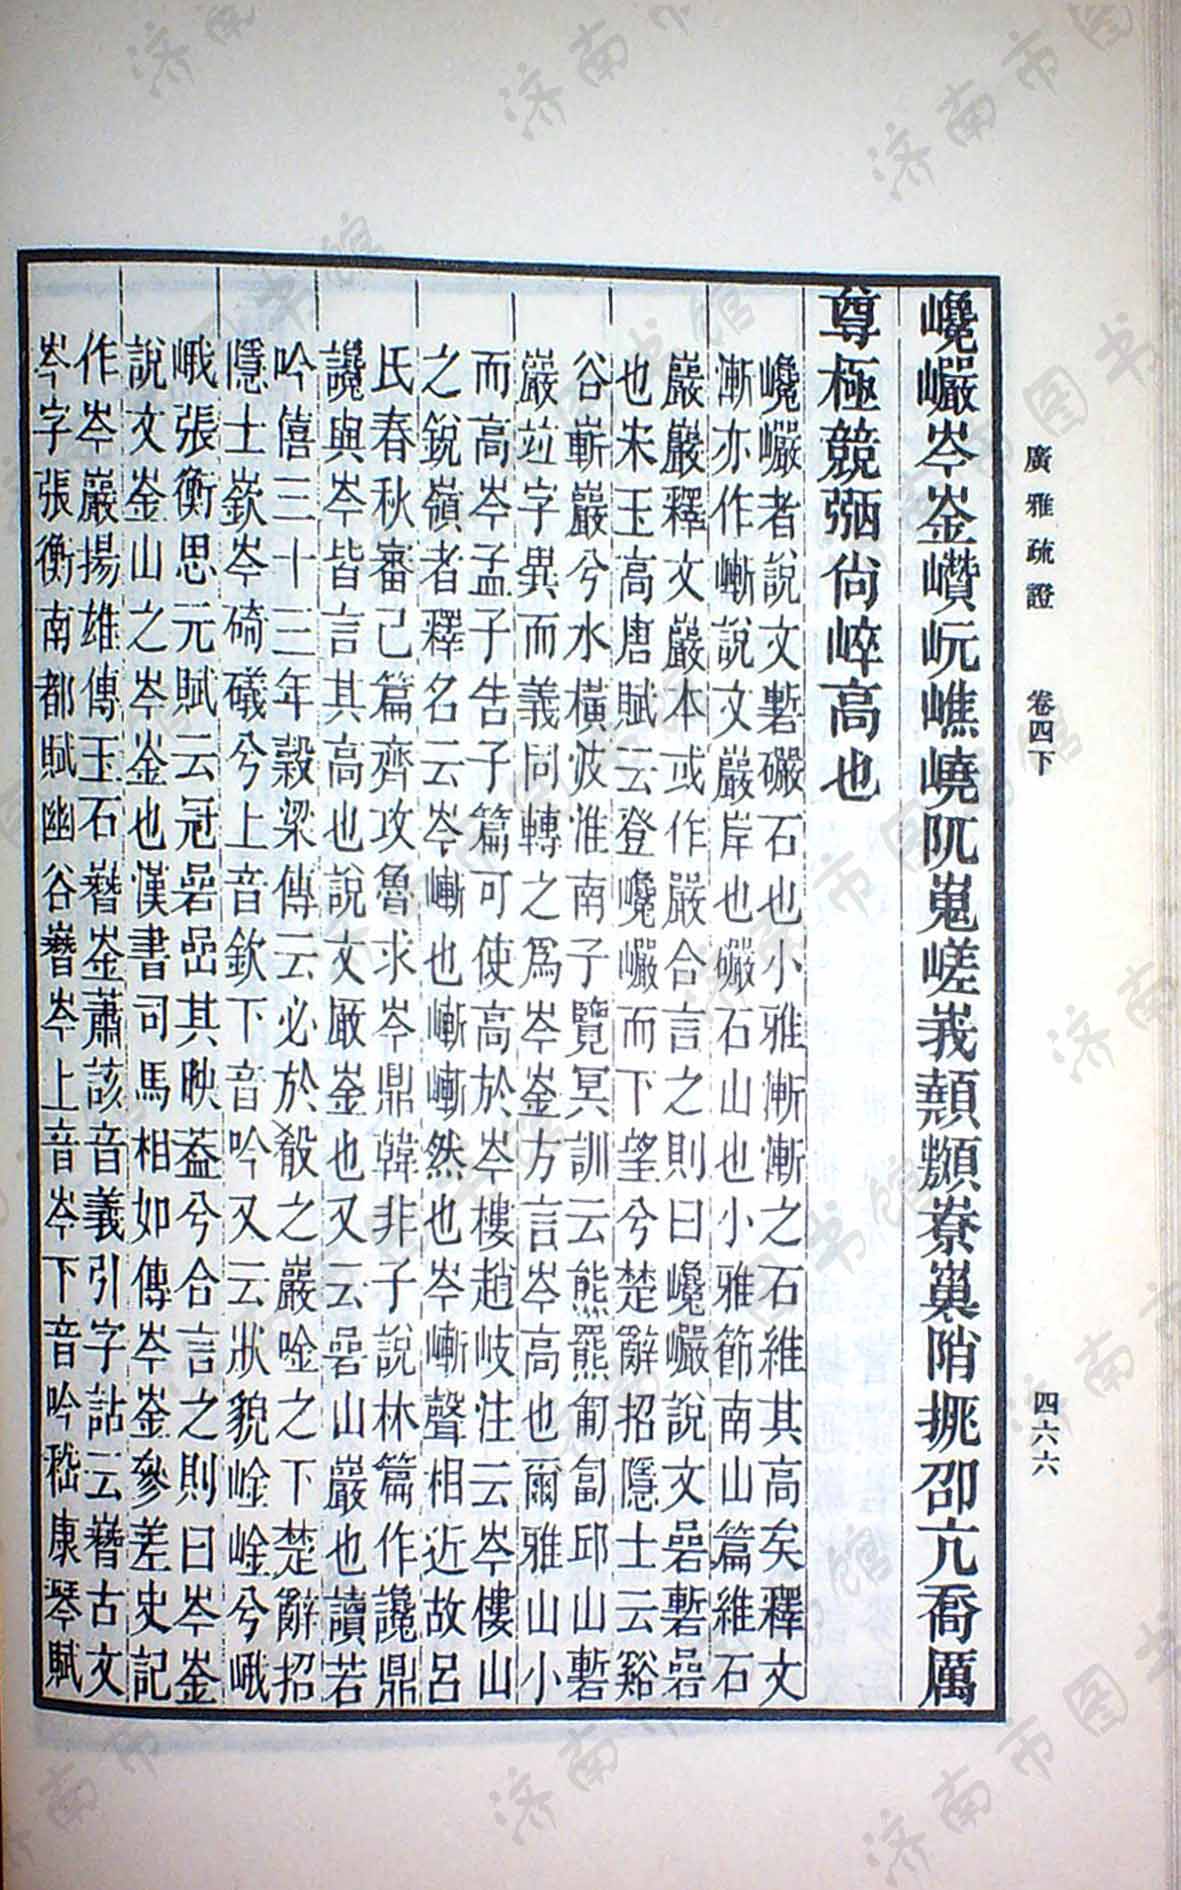 廣雅疏證 卷四下 四六六
巉巗岑崟巑岏嶕嶢阢嵬嵯峩顤顭嶚巢陗挑卲亢喬厲
尊極競弼尙崪高也
巉巗者說文磛礹石也小雅漸漸之石維其高矣釋文
漸亦作嶃說文巖岸也礹石山也小雅節南山篇維石
巖巖釋文巖本或作嚴合言之則曰巉巗說文碞磛碞
也宋玉高唐賦云登巉巗而下望兮楚辭招隱士云谿
谷嶄巖兮水橫波淮南子覽冥訓云熊羆匍匐邱山磛
巖竝字異而義同轉之爲岑崟方言岑高也爾雅山小
而高岑孟子告子篇可使高於岑樓趙岐注云岑樓山
之銳嶺者釋名云岑嶃也嶃嶃然也岑嶃聲相近故呂
氏春秋審己篇齊攻魯求岑鼎韓非子說林篇作讒鼎
讒與岑皆言其高也說文厰崟也又云碞山巖也讀若
吟僖三十三年穀梁傳云必於殽之巖唫之下楚辭招
隱士嶔岑碕礒兮上音欽下音吟又云狀貌崯崯兮峨
峨張衡思元賦云冠碞嵒其映葢兮合言之則曰岑崟
說文崟山之岑崟也漢書司馬相如傳岑崟參差史記
作岑巖揚雄傳玉石嶜崟蕭該音義引字詁云嶜古文
岑字張衡南都賦幽谷嶜岑上音岑下音吟嵇康琴賦
济南市图书馆